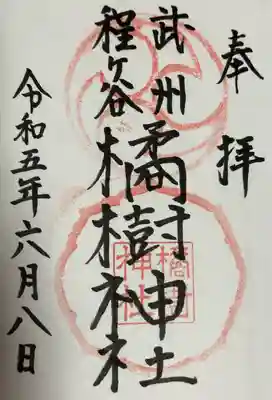 奉拝
武州
程ヶ谷
橘樹神社
令和五年六月八日
橘樹
神社